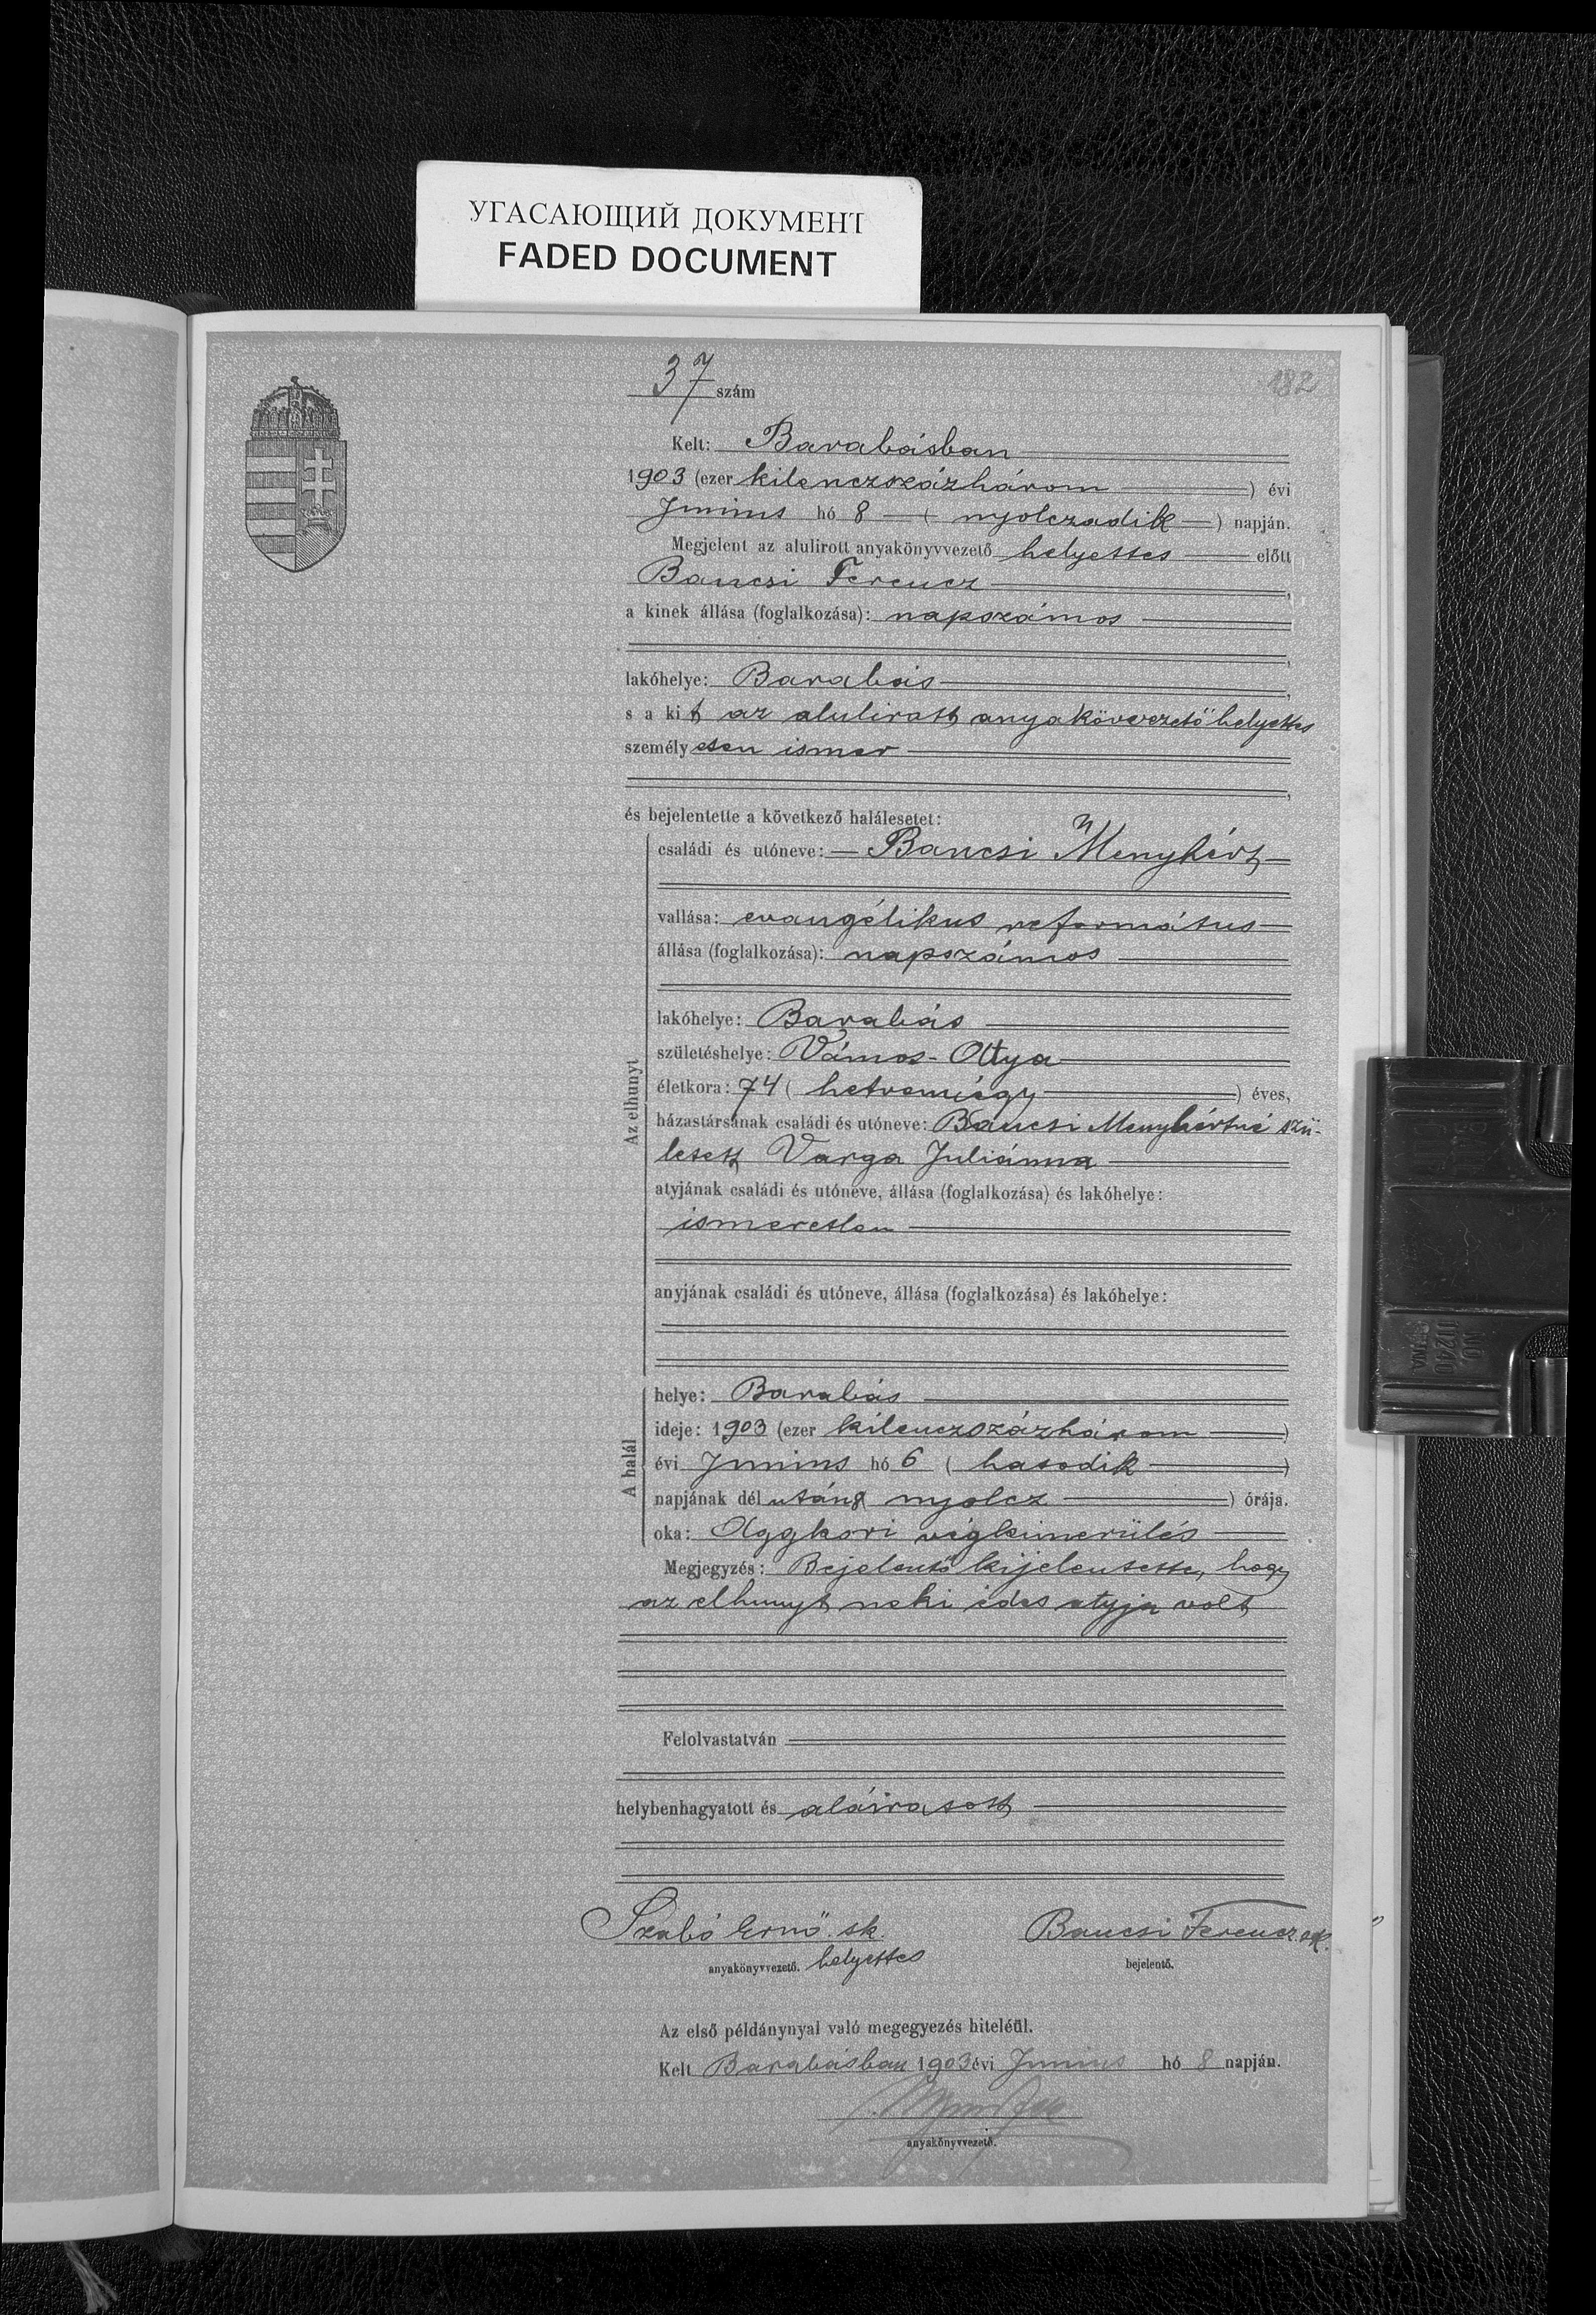 УГАСАЮЩИЙ ДОКУМЕНТ
FADED DOCUMENT
37 szám
132
Kelt: Barabásban
1903 (ezer kilenczszázhárom) évi
Junius hó 8 (nyolczadik) napján.
Megjelent az alulirott anyakönyvvezető helyettes előtt
Bancsi Ferencz,
a kinek állása (foglalkozása): napszámos
,
lakóhelye: Barabás,
s a kit az alulirott anyakövvezető helyettes
személyesen ismer
,
és bejelentette a következő halálesetet:
Az elhunyt
családi és utóneve: Bancsi Menyhért
vallása: evangélikus református
állása (foglalkozása): napszámos
lakóhelye: Barabás
születéshelye: Vámos-Atya
életkora: 74 (hetvennégy) éves,
házastársának családi és utóneve: Bancsi Menyhértné szü-
letett Varga Juliánna
atyjának családi és utóneve, állása (foglalkozása) és lakóhelye:
ismeretlen
anyjának családi és utóneve, állása (foglalkozása) és lakóhelye:
A halál
helye: Barabás
ideje: 1903 (ezer kilenczszázhárom)
évi Junius hó 6 (hatodik)
napjának délután 8 nyolcz) órája.
oka: Aggkori végkimerülés
Megjegyzés: Bejelentő kijelentette, hogy
az elhunyt neki édes atyja volt
Felolvastatván
helybenhagyatott és aláiratott
Szabó Ernő sk.
anyakönyvvezető. helyettes
Bancsi Ferencz sk.
bejelentő.
Az első példánynyal való megegyezés hiteléül.
Kelt Barabásban 1903 évi Junius hó 8 napján.
anyakönyvvezető.